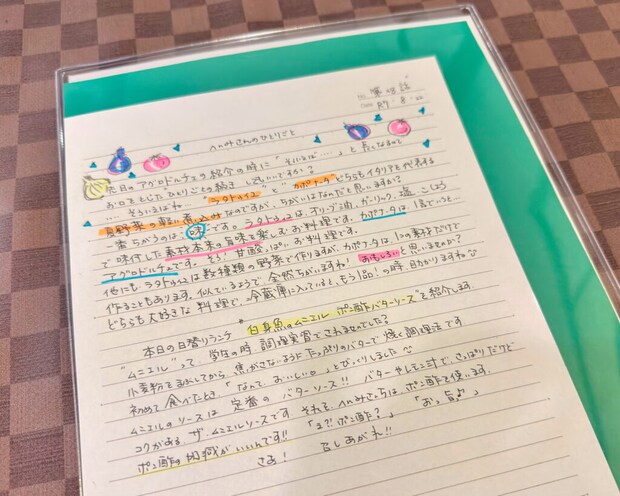 第18話
R7.8.22
へんみさんのひとりごと
先日のアグロドルチェの紹介の時に"そういえば……"と言ったなるので
お口をとじたひとりごとの続き してもいいですか？
……そういえばね… "ラタトゥイユ"と"カポナータ"どちらもイタリアを代表する
夏野菜の軽い煮込みなのですが、ちがいはなんだと思いますか？
一番ちがうのは"味"です。ラタトゥイユは、オリーブ油、ガーリック、塩、こしょう
で味付した素材本来の旨味を楽しむお料理です。カポナータは、1度でいうと…
アグロドルチェです。そう！甘酸っぱいお料理です。
他にもラタトゥイユは数種類の野菜で作りますが、カポナータは、1つの素材だけで
作ることもあります。似ているようで全然ちがいますね！おもしろいと思いませんか？
どちらも大好きな料理で、冷蔵庫に入っていると、もう1品！の時助かりますね
本日の日替りランチ "白身魚のムニエル ポン酢バターソース"を紹介します
"ムニエル"って、学生の時調理実習で されませんでした？
小麦粉をまぶしてから、焦がさないようにたっぷりのバターで焼く調理法です
初めて食べたとき「なんて、おいしいの。」とびっくりしました
ムニエルのソースは 定番の バターソース!! バターやレモン汁で さっぱりだけど
コクがある、ザ・ムニエルソースです それを、へんみさんちは、ポン酢を使います。
ポン酢の酸味がいいんです!! 「え?!ポン酢？」 「おっ旨♪」
さあ！ 召しあがれ!!